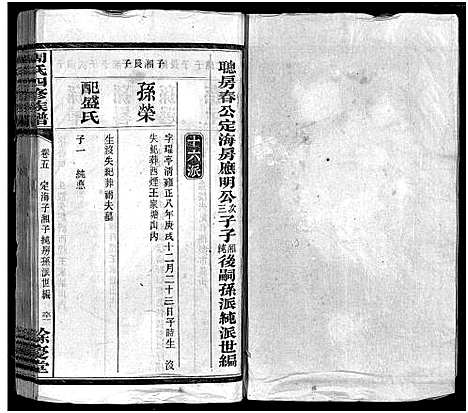 聰房春公定海房應明公次三子子湘純後嗣孫派純派世編
十六派
子湘長子
孫榮
字瑆亭清雍正八年庚戌十二月二十三日子時生 沒
失紀葬西煙王家塘山內
配盛氏
生沒失紀葬祔夫墓
子一 純應
周氏四修族譜
卷五 定海子湘子純房派世編